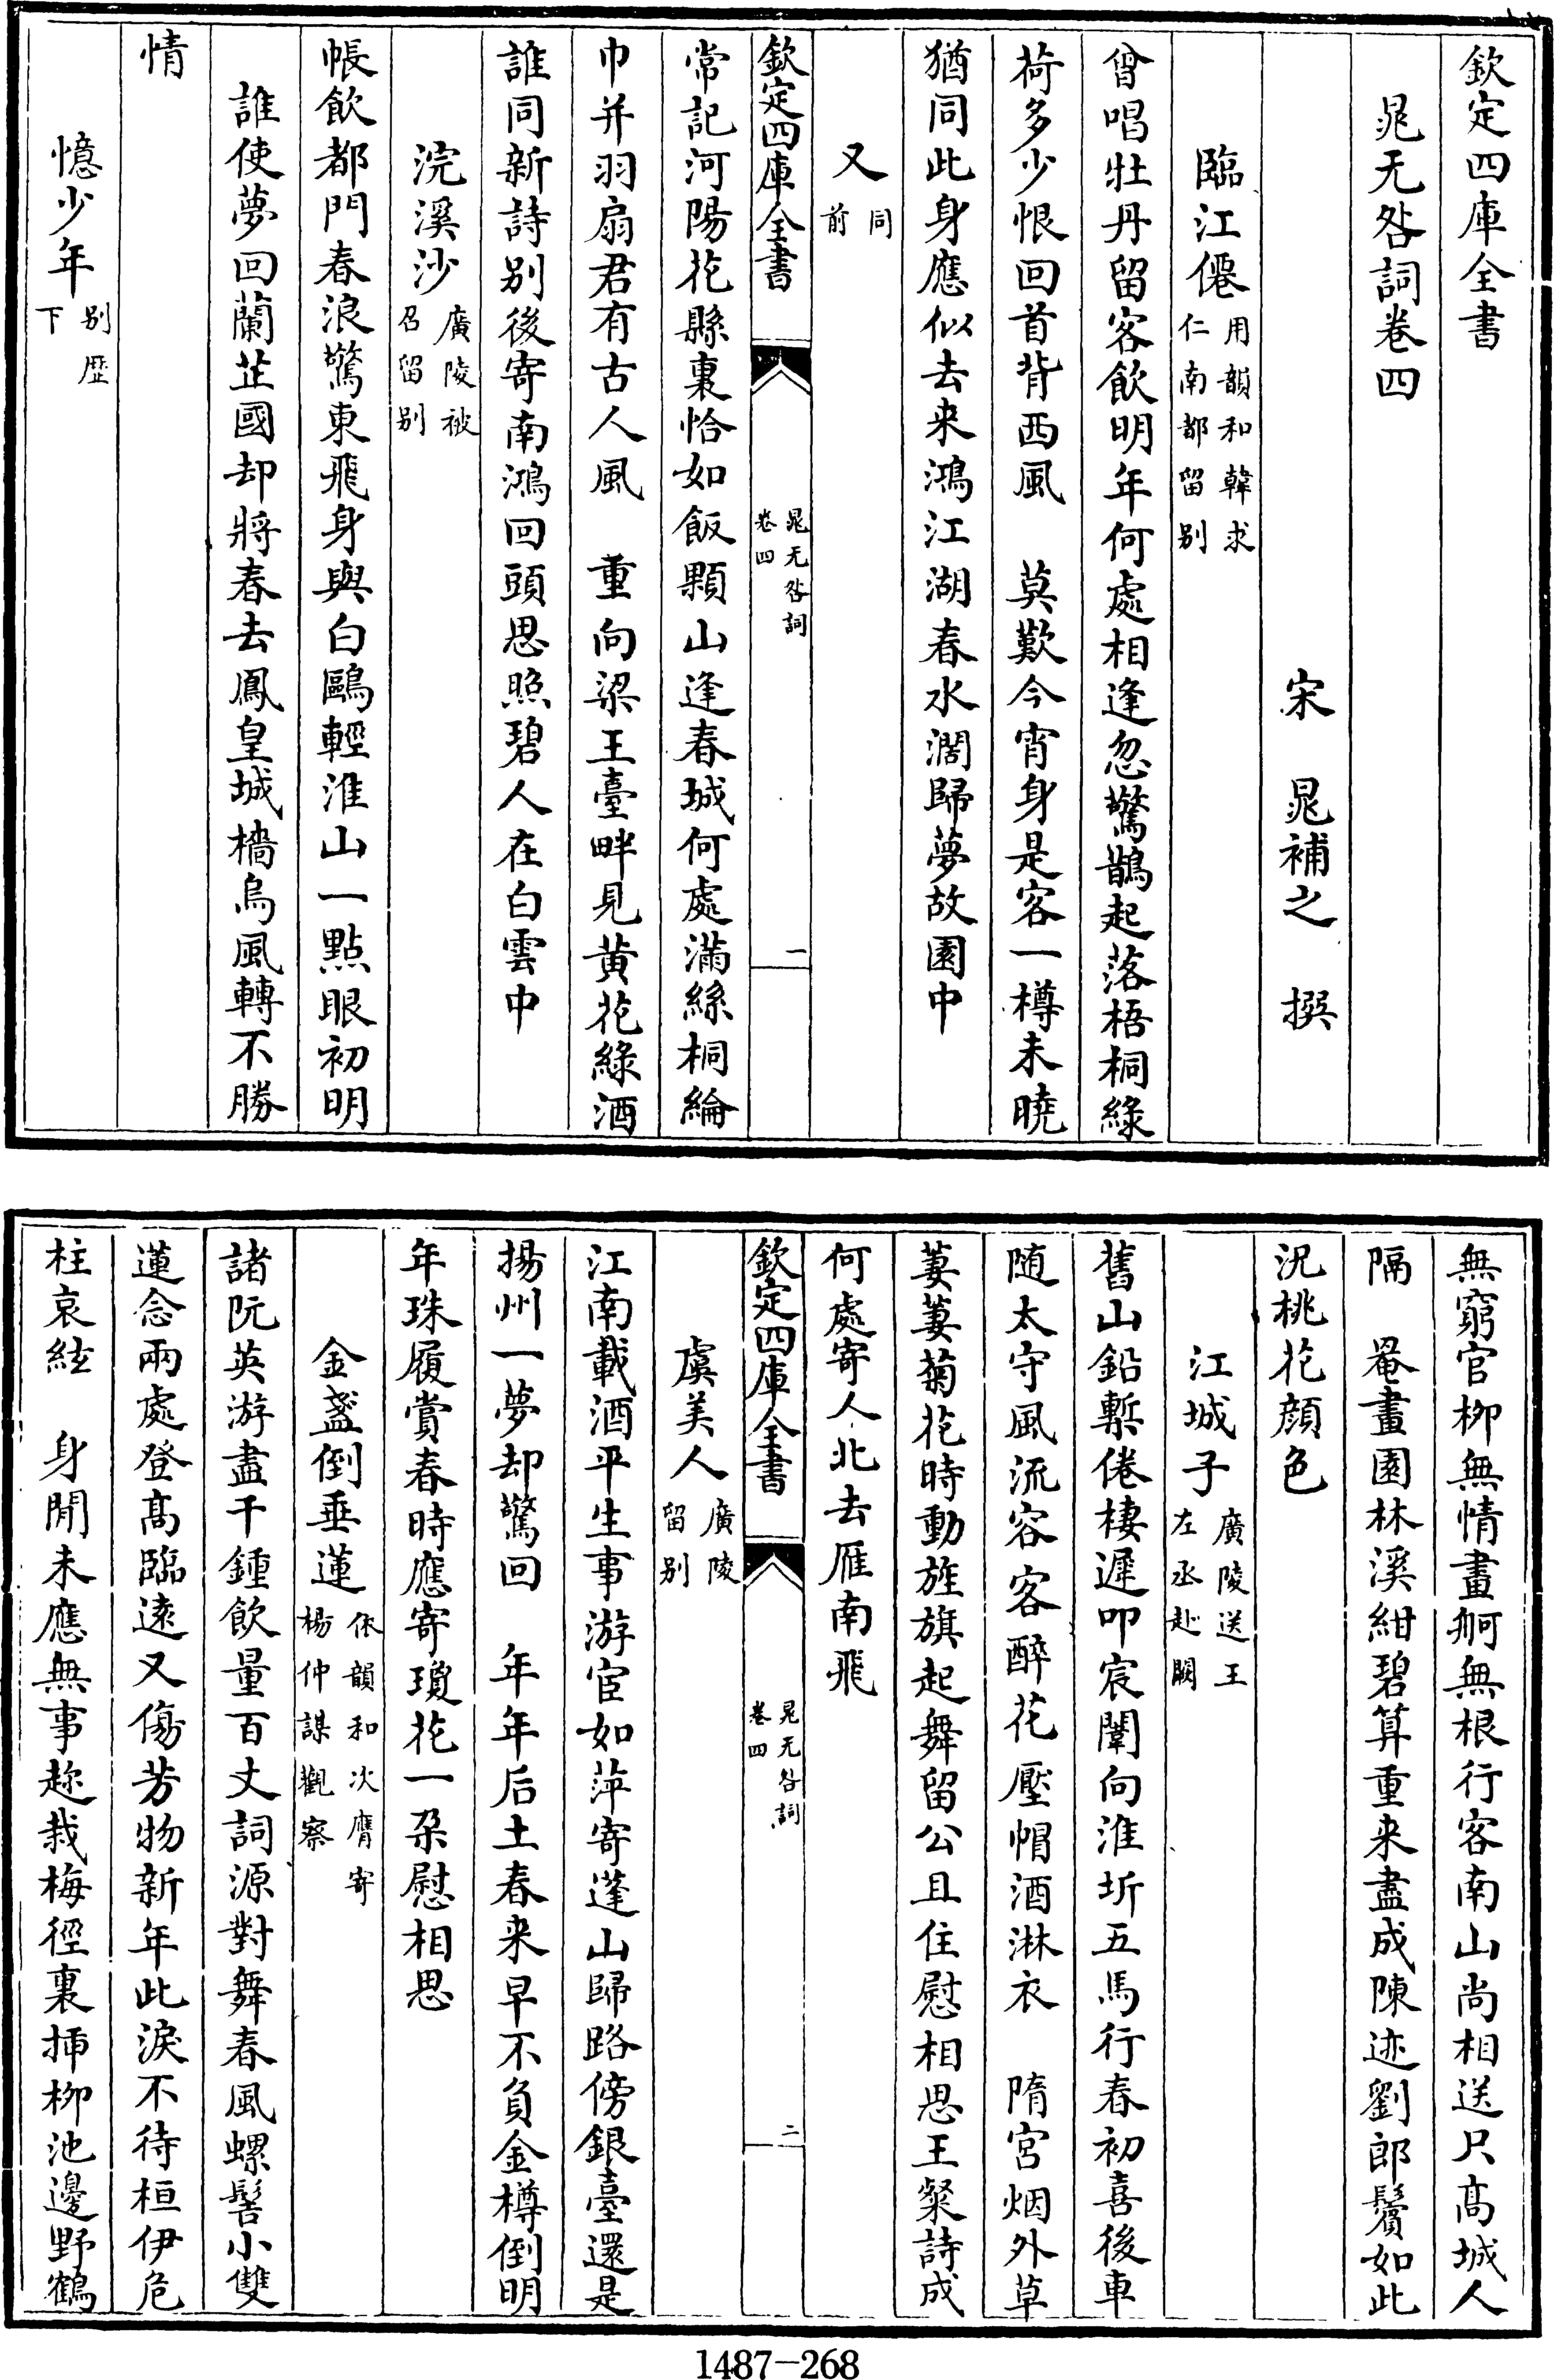 欽定四庫全書
晁无咎詞卷四
宋 晁補之 撰
臨江僊用韻和韓求仁南都留别
曾唱牡丹留客飲明年何處相逢忽驚鵲起落梧桐綠
荷多少恨回首背西風 莫歎今宵身是客一樽未曉
猶同此身應似去来鴻江湖春水濶歸夢故園中
又同前
欽定四庫全書 晁无咎詞卷四 一
常記河陽花縣裏恰如飯顆山逢春城何處滿絲桐綸
巾并羽扇君有古人風 重向梁王臺畔見黄花綠酒
誰同新詩别後寄南鴻回頭思照碧人在白雲中
浣溪沙廣陵被召留别
帳飲都門春浪驚東飛身與白鷗輕淮山一點眼初明
誰使夢回蘭芷國却將春去鳳皇城檣烏風轉不勝
情
憶少年别歷下
無窮官柳無情畫舸無根行客南山尚相送只髙城人
隔 罨畫園林溪紺碧算重来盡成陳迹劉郎鬢如此
況桃花顔色
江城子廣陵送王左丞赴闕
舊山鉛槧倦棲遲叩宸闈向淮圻五馬行春初喜後車
随太守風流容客醉花壓帽酒淋衣 隋宫烟外草
萋萋菊花時動旌旗起舞留公且住慰相思王粲詩成
何處寄人北去雁南飛
欽定四庫全書 晁无咎詞卷四 二
虞美人廣陵留别
江南載酒平生事游宦如萍寄蓬山歸路傍銀臺還是
揚州一夢却驚回 年年后土春来早不負金樽倒明
年珠履賞春時應寄瓊花一朶慰相思
金盞倒垂蓮依韻和次膺寄楊仲謀觀察
諸阮英游盡千鍾飲量百丈詞源對舞春風螺髻小雙
蓮念兩處登髙臨遠又傷芳物新年此淚不待桓伊危
柱哀絃 身閒未應無事趂栽梅徑裏揷栁池邊野鶴
1487-268